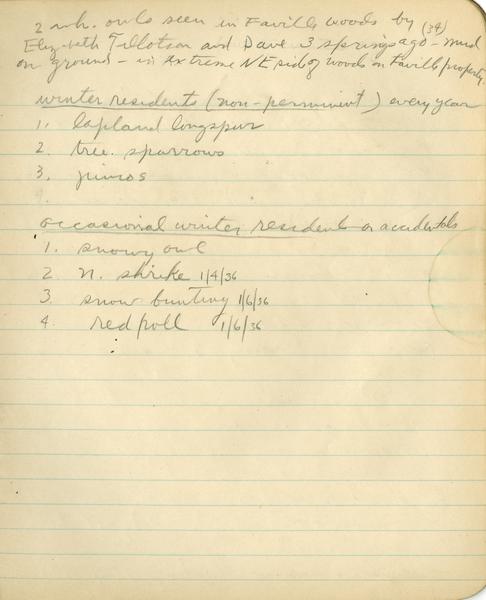 2 n.h. owls seen in Faville woods by (34)
Elizabeth Tillotson and Dave 3 springs ago - mud
on ground - in extreme NE side of woods on Faville property.
winter residents (non-perminint) every year
1. lapland longspur
2. tree. sparrows
3. juncos
occasional winter residents or accidentals
1. snowy owl
2 n. shrike 1/4/36
3. snow bunting 1/6/36
4. redpoll 1/6/36